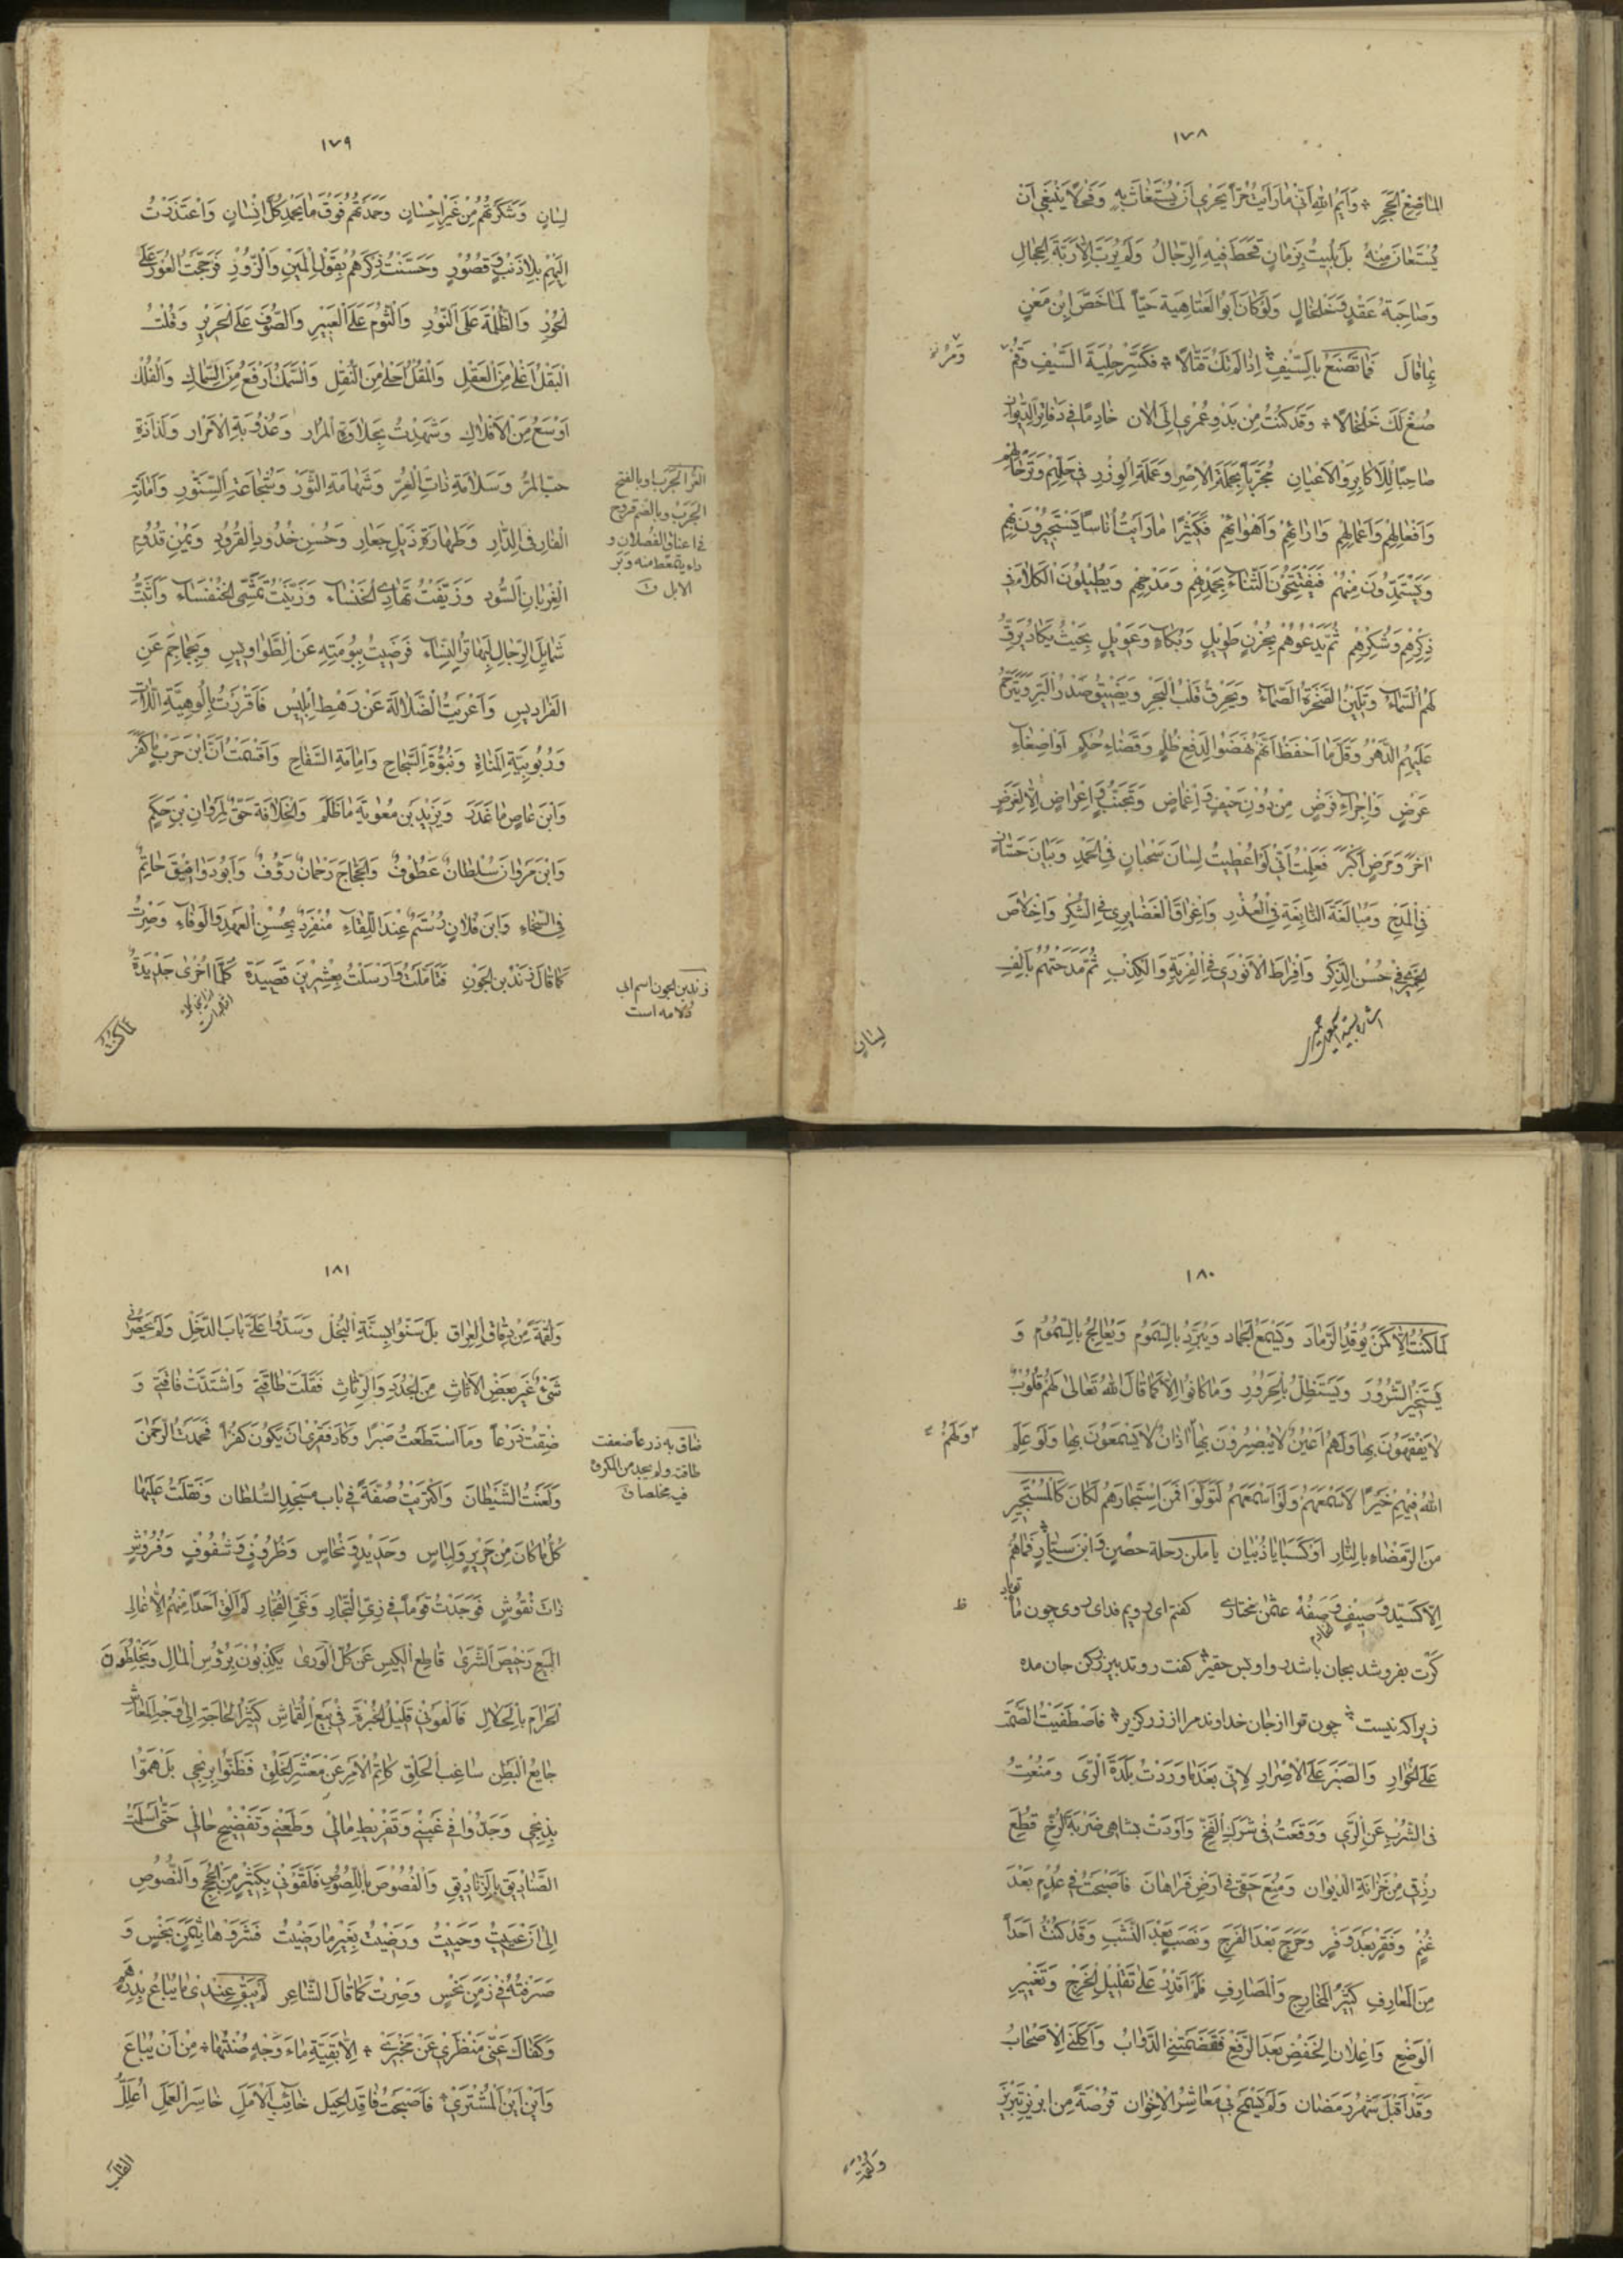 ١٧٨
الماضِغِ الحَجَرِ وَاَيمُ اللهِ اَنّى مٰا رَاَيتُ حُرّاً يَحْرىِ اَنْ يُسْتَغٰاثَ بِهِ وَفَحْلاً يَنْبَغى اَنْ
يُسْتَعٰانَ مِنْهُ بَلْ بُليتُ بِزَمٰانٍ قَحَطَ فيهِ الرِّجٰالُ وَلَمْ يُرَبَّ اِلاّ رَبَّةَ الحِجٰالِ
وَصٰاحِبَةُ عَقْدٍ وَخَلخٰالٍ وَلَوْ كٰانَ اَبُو العَتٰاهِيَةِ حَيّاً لَمٰا خَصَّ اِبْنَ مَعْنٍ
بِمٰا قٰالَ فَمٰا تَصْنَعُ بِالسَّيْفِ اِذٰا لَمْ تَكُ قَتّٰالاً فَكَسِّرْ حِلْيَةَ السَّيْفِ وَقُمْ
صُغْ لَكَ خَلْخٰالاً وَقَدْ كُنْتُ مِنْ بَدْوِ عُمْرى اِلَى الاٰن خٰادِمًا فى دَفٰاتِرِ الدّيوٰان
صٰاحِبًا لِلْاَكٰابِرِ وَالْاَعْيٰانِ مُجَرِّباً لِحَمَلَةِ الْاِصْرِ وَعَمَلَةِ الْوِزْرِ فى حَلِّهِمْ وَتَرْحٰالِهِمْ
وَاَفْعٰالِهِمْ وَاَعْمٰالِهِمْ وَاٰرٰائِهِمْ وَاَهْوٰائِهِمْ فَكَثيرًا مٰا رَاَيْتُ اُنٰاسًا يَسْتَجيرُونَ بِهِمْ
وَيَسْتَمِدُّونَ مِنْهُمْ فَيَفْتَتِحُونَ الثَّنٰاءَ بِحَمْدِهِمْ وَمَدْحِهِمْ وَيُطيلُونَ الْكَلاٰمَ فى
ذِكْرِهِمْ وَشُكْرِهِمْ ثُمَّ يَدْعُوهُمْ بِحُزْنٍ طَويلٍ وَبُكٰاءٍ وَعَويلٍ بِحَيْثُ يَكٰادُ يَرِقُّ
لَهُمُ السَّمٰاءُ وَيَلينُ الصَّخْرَةُ الصَّمّٰاءُ وَيَحْرِقُ قَلْبُ الْبَحْرِ وَيَضيقُ صَدْرُ الْبَرِّ وَيَتَرَحَّمُ
عَلَيْهِمُ الدَّهْرُ وَقَلَّ مٰا اَحْفَظُ اَنَّهُمْ نَهَضُوا لِدَفْعِ ظُلْمٍ وَقَضٰاءِ حُكْمٍ اَوْ اِصْغٰاءِ
عَرْضٍ وَاِجْرٰاءِ فَرْضٍ مِنْ دُوْنِ حَيْفٍ وَاِغْمٰاضٍ وَتَجَنُّبٍ وَاِعْرٰاضٍ اِلاّ لِغَرَضٍ
اٰخَرَ وَمَرَضٍ اَكْبَرَ فَعَلِمْتُ اَنّى لَوْ اُعْطيتُ لِسٰانَ سَحْبٰانٍ فِى الْحَمْدِ وَبَيٰانَ حَسّٰانٍ
فى الْمَدْحِ وَمُبٰالَغَةَ النّٰابِغَةِ فِى الْعُذْرِ وَاِغْرٰاقَ الْغَضٰايِرى فِى الشُّكْرِ وَاِخْلاٰصَ
الْحِمْيَرىِّ فى حُسْنِ الذِّكْرِ وَاِفْرٰاطَ الْاَنْوَرى فِى الْفِرْيَةِ وَالْكِذْبِ ثُمَّ مَدَحْتُهُمْ بِاَلْفِ
لِسٰان
١٧٩
لِسٰانٍ وَشَكَرْتُهُمْ مِنْ غَيْرِ اِحْسٰانٍ وَحَمَدْتُهُمْ فَوْقَ مٰا يَحْمَدُ كُلَّ اِنْسٰانٍ وَاعْتَذَرْتُ
اِلَيْهِمْ بِلاٰ ذَنْبٍ وَقُصُورٍ وَحَسَّنْتُ ذِكْرَهُمْ بِقَوْلِ الْمَيْنِ وَالزُّورِ فَرَجَّحْتُ الْعُوْرَ عَلَى
الْحُورِ وَالظُّلْمَةَ عَلَى النُّورِ وَالثُّومَ عَلَى الْعَبيرِ وَالصُّوفَ عَلَى الْحَريرِ وَقُلْتُ
الْبَقْلُ اَعْلىٰ مِنَ الْعَقْلِ وَالْمُقْلُ اَحْلىٰ مِنَ النُّقْلِ وَالسَّمَكُ اَرْفَعُ مِنَ السِّمٰاكِ وَالْفُلْكُ
اَوْسَعُ مِنَ الْاَفْلاٰكِ وَشَهِدْتُ بِحَلاٰوَةِ الْمُرٰارِ وَعُذُوبَةِ الْاَمْرٰارِ وَلَذٰاذَةِ
حبّ المُرِّ وَسَلاٰمَةِ ذٰاتِ الْعُرِّ وَشَهٰامَةِ الثَّوْرِ وَشُجٰاعَةِ السِّنَّوْرِ وَاَمٰانَةِ
الْفٰارِ فى الدّٰارِ وَطَهٰارَةِ ذَيْلِ جَعٰارِ وَحُسْنِ خُدُودِ الْقُرُودِ وَيُمْنِ قُدُومِ
الْغِرْبٰانِ السُّودِ وَزَيَّفْتُ تَهٰادِى الْخَنْسٰاءِ وَزَيَّنْتُ تَمَشِّى الْخُنْفَسٰاءِ وَاَثْبَتُّ
شَمٰايِلَ الرِّجٰالِ لِهٰاتِرِ النِّسٰاءِ فَرَضيتُ بِبُومَتِهِ عَنِ الطَّوٰاويسِ وَبِجٰاجِمَ عَنِ
الْفَرٰاديسِ وَاَعْرَيْتُ الضَّلاٰلَةَ عَنْ رَهْطِ اِبْليسَ فَاَقْرَرْتُ بِاُلُوهِيَّةِ اللاّٰتِ
وَرُبُوبِيَّةِ الْمَنٰاةِ وَنُبُوَّةِ السَّجٰاحِ وَاِمٰامَةِ السَّفّٰاحِ وَاَقْسَمْتُ اَنَّ ابْنَ حَرْبٍ مٰا كَفَرَ
وَابْنَ عٰاصٍ مٰا غَدَرَ وَيَزيْدَ بْنَ مُعٰوِيَةَ مٰا ظَلَمَ وَالْخِلاٰفَةَ حَقٌّ لِمَرْوٰانِ بْنِ حَكَمٍ
وَابْنَ مَرْوٰانَ سُلْطٰانٌ عَطُوْفٌ وَالْحَجّٰاجَ رَحْمٰانٌ رَؤُفٌ وَاَبُو دَوٰانيقَ حٰاتِمٌ
فى السَّخٰاءِ وَابْنَ فُلاٰنٍ رُسْتَمٌ عِنْدَ اللِّقٰاءِ مُنْفَرِدٌ بِحُسْنِ الْعَهْدِ وَالْوَفٰاءِ وَصِرْتُ
كَمٰا قٰالَ زَنْدُ بْنُ الجَوْنِ فَتَاَمَّلْتُ وَاَرْسَلْتُ بِعِشْرينَ قَصيدَة كُلَّمٰا اُخْرٰى جَديدَةٌ
العُرّ الجَرَب اوبالفتح
الجَرَبُ وبالضمّ قروح
فى اعناق الفصلان و
داء يتمعّط منه وَبَر
الابل ق
زند بن الجون اسم ابى
دُلامه است
١٨٠
لَمٰا كُنْتُ اِلاّ كَمَنْ يُوقِدُ الرَّمٰادَ وَيُسْمِعُ الْجَمٰاد وَيَبْرُدُ بِالسَّمُومِ وَيُعٰالِجُ بِالسُّمُومِ وَ
يَسْتَخْيِرُ الشُّرُورَ وَيَسْتَظِلُّ بِالْحَرُورِ وَمٰا كٰانُوا اِلاّ كَمٰا قٰالَ اللهُ تَعٰالىٰ لَهُمْ قُلُوبٌ
لاٰ يَفْقَهُونَ بِهٰا وَلَهُمْ اَعْيُنٌ لاٰ يُبْصِرُونَ بِهٰا اٰذٰانٌ لاٰ يَسْمَعُونَ بِهٰا وَلَوْ عَلِمَ
وَلَهُمْ
اللهُ فيهِمْ خَيْرًا لَاَسْمَعَهُمْ وَلَوْ اَسْمَعَهُمْ لَتَوَلَّوْا فَمَنِ اسْتَجٰارَهُمْ لَكٰانَ كَالْمُسْتَجيرِ
مِنَ الرَّمْضٰاءِ بِالنّٰارِ
اِلاّ كَسَيِّدِ وَصيفٍ وَصَفَهُ عثمٰن مختارى كفتم اى رويم فداى روى چون ماه
كرت بفروشد بجان باشد
زيراكه نيست چون توا از جان خداوند مرا از زر كزير فَاصْطَفَيْتُ الصَّمْتَ
عَلَى الْحِوٰارِ وَالصَّبْرَ عَلَى الْاِصْرٰارِ لِاَنّى بَعْدَ مٰا وَرَدْتُ بَلْدَةَ الرَّىِّ وَمُنِعْتُ
فى الشُّرْبِ عَنِ الرَّىِّ وَوَقَعْتُ فى شَرَكِ الْفَخِّ وَاَوْدَتْ بِشٰاهى ضَرْبَةُ الرُّخِّ قُطِعَ
رِزْقى مِنْ خَزٰانَةِ الدّيوٰان وَمُنِعَ حَقّى فى اَرْضِ فَرٰاهٰانَ فَاَصْبَحْتُ فى عُدْمٍ بَعْدَ
غُنْمٍ وَفَقْرٍ بَعْدَ وَفْرٍ وَحَرَجٍ بَعْدَ الْفَرَجِ وَنَصَبٍ بَعْدَ النَّشَبِ وَقَدْ كُنْتُ اَحَدًا
مِنَ الْمَعٰارِفِ كَثيرَ الْمَخٰارِجِ وَالْمَصٰارِفِ فَلَمْ اَقْدِرْ عَلىٰ تَقْليلِ الْخَرْجِ وَتَغْييرِ
الْوَضْعِ وَاِعْلاٰنِ الْخَفْضِ بَعْدَ الرَّفْعِ فَقَضَمَتْنِى الدَّوٰابُّ وَاَكَلَنِى الْاَصْحٰابُ
وَقَدْ اَقْبَلَ شَهْرُ رَمَضٰان وَلَمْ يَسْمَحْ بى مَعٰاشِرُ الْاِخْوٰان قُرْصَةً مِنْ اِبْريزِ تَبْريزَ
وَلُقْمَةً
١٨١
وَلُقْمَةً مِنْ رِقٰاقِ الْعِرٰاق بَلْ سَنُّوا بِسُنَّةِ الْبُخْلِ وَسَدُّوا عَلَىَّ بٰابَ الدَّخْلِ وَلَمْ يَحْضُرْنى
شَئٌ غَيْرَ بَعْضِ الْاَثٰاثِ مِنَ الْجُدُدِ وَالرِّثٰاثِ فَقَلَّتْ طٰاقَتى وَاشْتَدَّتْ فٰاقَتى وَ
ضِقْتُ ذَرْعاً وَمَا اسْتَطَعْتُ صَبْرًا وَكٰادَ فَقْرى اَنْ يَكُونَ كُفْرًا فَحَمَدْتُ الرَّحْمٰنَ
وَلَعَنْتُ الشَّيْطٰانَ وَاكْتَرَيْتُ صُفَّةً فى بٰابِ مَسْجِدِ السُّلْطٰان وَنَقَلْتُ عَلَيْهٰا
كُلَّ مٰا كٰانَ مِنْ حَريرٍ وَلِبٰاسٍ وَحَديدٍ وَنُحٰاسٍ وَظُرُوفٍ وَشُفُوفٍ وَفُرُوشٍ
ذٰاتَ نُقُوشٍ فَوَجَدْتُ قَوْماً فى زِىِّ التُّجّٰارِ وَغَىِّ الْفُجّٰارِ لَمْ اَلْقَ اَحَدًا مِنْهُمْ اِلاّ غٰالِىَ
الْبَيْعِ رَخيصَ الشِّرىٰ قٰاطِعَ الْكيسِ عَنْ كُلِّ الْوَرىٰ يَكْذِبُونَ بِرُؤُسِ الْمٰالِ وَيَخْلِطُونَ
الْحَرٰامَ بِالْحَلاٰلِ فَاَلْفَوْنى قَليلَ الْخُبْرَةِ فى بَيْعِ الْقُمٰاشِ كَثيرَ الْحٰاجَةِ اِلىٰ وَجْهِ الْمَعٰاشِ
جٰايِعَ الْبَطْنِ سٰاغِبَ الْحَلْقِ كٰاتِمَ الْاَمْرِ عَنْ مَعْشَرِ الْخَلْقِ فَظَنُّوا بِرِبْحى بَلْ هَمُّوا
بِذِبْحى وَجَدُّوا فى غَبْنى وَتَفْريطِ مٰالى وَطَعْنى وَتَفْضيحِ حٰالى حَتّىٰ اَسْلَمْتُ
الصَّنٰاديقَ بِالزَّنٰاديقِ وَالْفُصُوصَ بِاللُّصُوصِ فَلَقَوْنى بِكَثيرٍ مِنَ الْحُجَجِ وَالنُّصُوصِ
اِلىٰ اَنْ عَييتُ وَحَييتُ وَرَضيتُ بِغَيْرِ مٰا رَضيتُ فَشَرَوْهٰا بِثَمَنٍ بَخْسٍ وَ
صَرَفْتُهُ فى زَمَنٍ نَحْسٍ وَصِرْتُ كَمٰا قٰالَ الشّٰاعِر لَمْ يَبْقَ عِنْدى مٰا يُبٰاعُ بِدِرْهَمٍ
وَكَفٰاكَ عَنّى مَنْظَرى عَنْ مَخْبَرى اِلاّ بَقِيَّةِ مٰاءِ وَجْهٍ صُنْتُهٰا مِنْ اَنْ يُبٰاعَ
وَاَيْنَ اَيْنَ الْمُشْتَرى فَاَصْبَحْتُ فٰاقِدَ الْحِيَلِ خٰائِبَ الْاَمَلِ خٰاسِرَ الْعَمَلِ اُعَلِّلُ
ضاق به ذرعاً ضعفت
طاقته ولم يجد من المكروه
فيه مخلصا ق
القلب